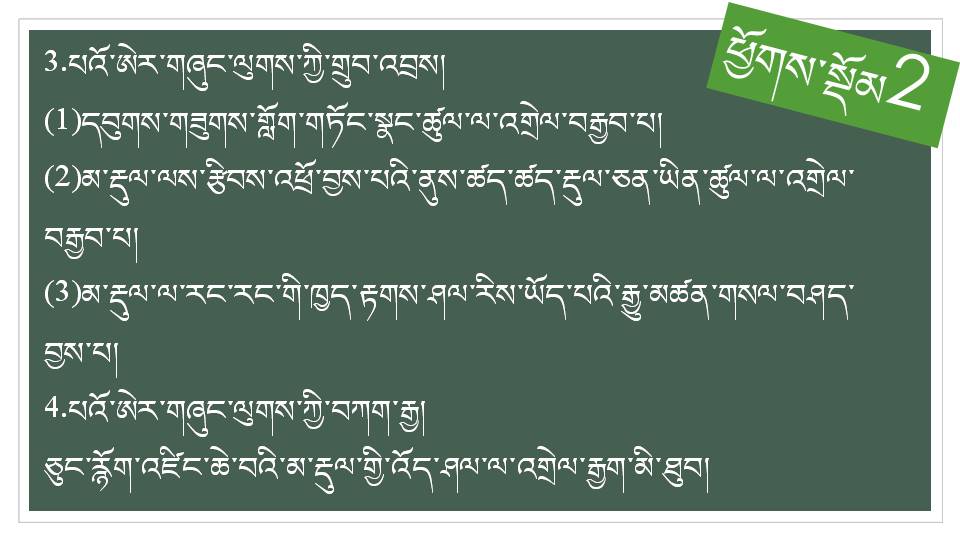 ཕྱོགས་སྡོམ2
3.པའོ་ཨེར་གཞུང་ལུགས་ཀྱི་གྲུབ་འབྲས།
(1)དབུགས་གཟུགས་གློག་གཏོང་སྣང་ཚུལ་ལ་འགྲེལ་བརྒྱབ་པ།
(2)མ་རྡུལ་ལས་རྩིབས་འཕྲོ་བྱས་པའི་ནུས་ཚད་ཚད་རྡུལ་ཅན་ཡིན་ཚུལ་ལ་འགྲེལ་
བརྒྱབ་པ།
(3)མ་རྡུལ་ལ་རང་རང་གི་ཁྱད་རྟགས་ཤལ་རིས་ཡོད་པའི་རྒྱུ་མཚན་གསལ་བཤད་
བྱས་པ།
4.པའོ་ཨེར་གཞུང་ལུགས་ཀྱི་བཀག་རྒྱ།
ཅུང་རྙོག་འཛིང་ཆེ་བའི་མ་རྡུལ་གྱི་འོད་ཤལ་ལ་འགྲེལ་རྒྱག་མི་ཐུབ།